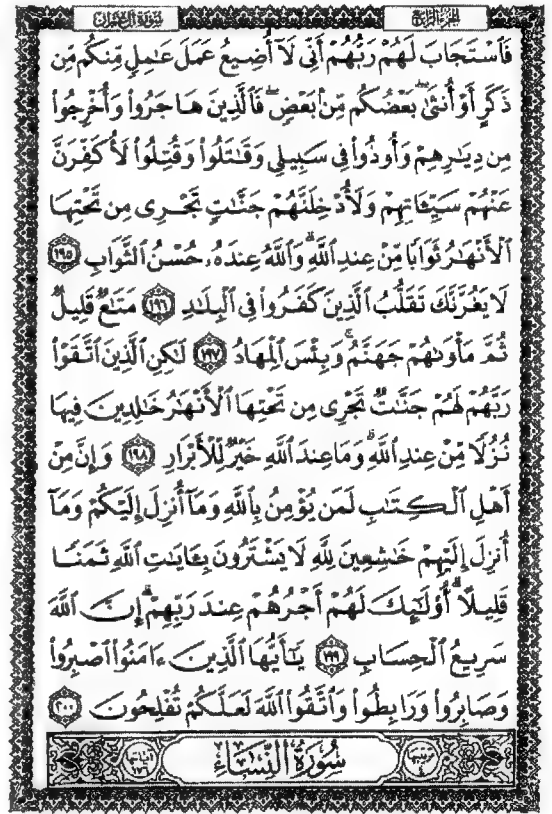 سُورَةُ آلِ عِمْرَانَ
الجُزْءُ الرَّابِعُ
فَٱسْتَجَابَ لَهُمْ رَبُّهُمْ أَنِّى لَآ أُضِيعُ عَمَلَ عَٰمِلٍ مِّنكُم مِّن
ذَكَرٍ أَوْ أُنثَىٰ ۖ بَعْضُكُم مِّنۢ بَعْضٍ ۖ فَٱلَّذِينَ هَاجَرُوا۟ وَأُخْرِجُوا۟
مِن دِيَٰرِهِمْ وَأُوذُوا۟ فِى سَبِيلِى وَقَٰتَلُوا۟ وَقُتِلُوا۟ لَأُكَفِّرَنَّ
عَنْهُمْ سَيِّـَٔاتِهِمْ وَلَأُدْخِلَنَّهُمْ جَنَّٰتٍ تَجْرِى مِن تَحْتِهَا
ٱلْأَنْهَٰرُ ثَوَابًا مِّنْ عِندِ ٱللَّهِ ۗ وَٱللَّهُ عِندَهُۥ حُسْنُ ٱلثَّوَابِ ١٩٥
لَا يَغُرَّنَّكَ تَقَلُّبُ ٱلَّذِينَ كَفَرُوا۟ فِى ٱلْبِلَٰدِ ١٩٦ مَتَٰعٌ قَلِيلٌ
ثُمَّ مَأْوَىٰهُمْ جَهَنَّمُ ۚ وَبِئْسَ ٱلْمِهَادُ ١٩٧ لَٰكِنِ ٱلَّذِينَ ٱتَّقَوْا۟
رَبَّهُمْ لَهُمْ جَنَّٰتٌ تَجْرِى مِن تَحْتِهَا ٱلْأَنْهَٰرُ خَٰلِدِينَ فِيهَا
نُزُلًا مِّنْ عِندِ ٱللَّهِ ۗ وَمَا عِندَ ٱللَّهِ خَيْرٌ لِّلْأَبْرَارِ ١٩٨ وَإِنَّ مِنْ
أَهْلِ ٱلْكِتَٰبِ لَمَن يُؤْمِنُ بِٱللَّهِ وَمَآ أُنزِلَ إِلَيْكُمْ وَمَآ
أُنزِلَ إِلَيْهِمْ خَٰشِعِينَ لِلَّهِ لَا يَشْتَرُونَ بِـَٔايَٰتِ ٱللَّهِ ثَمَنًا
قَلِيلًا ۗ أُو۟لَٰٓئِكَ لَهُمْ أَجْرُهُمْ عِندَ رَبِّهِمْ ۗ إِنَّ ٱللَّهَ
سَرِيعُ ٱلْحِسَابِ ١٩٩ يَٰٓأَيُّهَا ٱلَّذِينَ ءَامَنُوا۟ ٱصْبِرُوا۟
وَصَابِرُوا۟ وَرَابِطُوا۟ وَٱتَّقُوا۟ ٱللَّهَ لَعَلَّكُمْ تُفْلِحُونَ ٢٠٠
سُورَةُ النِّسَاءِ
آياتها ١٧٦